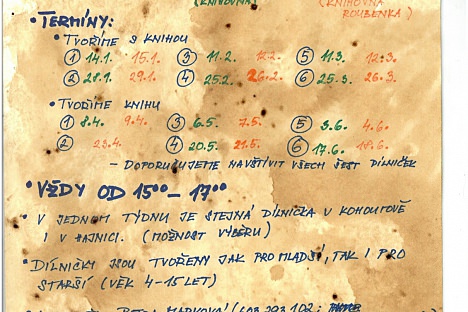 (KNIHOVNA) (KNIHOVNA
ROUBENKA)
• TERMÍNY:
• TVOŘÍME S KNIHOU
① 14.1. 15.1. ③ 11.2. 12.2. ⑤ 11.3. 12.3.
② 28.1. 29.1. ④ 25.2. 26.2. ⑥ 25.3. 26.3.
• TVOŘÍME KNIHU
① 8.4. 9.4. ③ 6.5. 7.5. ⑤ 3.6. 4.6.
② 23.4. ④ 20.5. 21.5. ⑥ 17.6. 18.6.
– DOPORUČUJEME NAVŠTÍVIT VŠECH ŠEST DÍLNIČEK
• VŽDY OD 15⁰⁰ – 17⁰⁰
• V JEDNOM TÝDNU JE STEJNÁ DÍLNIČKA V KOHOUTOVĚ
I V HAJNICI. (MOŽNOST VÝBĚRU)
• DÍLNIČKY JSOU TVOŘENY JAK PRO MLADŠÍ, TAK I PRO
STARŠÍ (VĚK 4-15 LET)